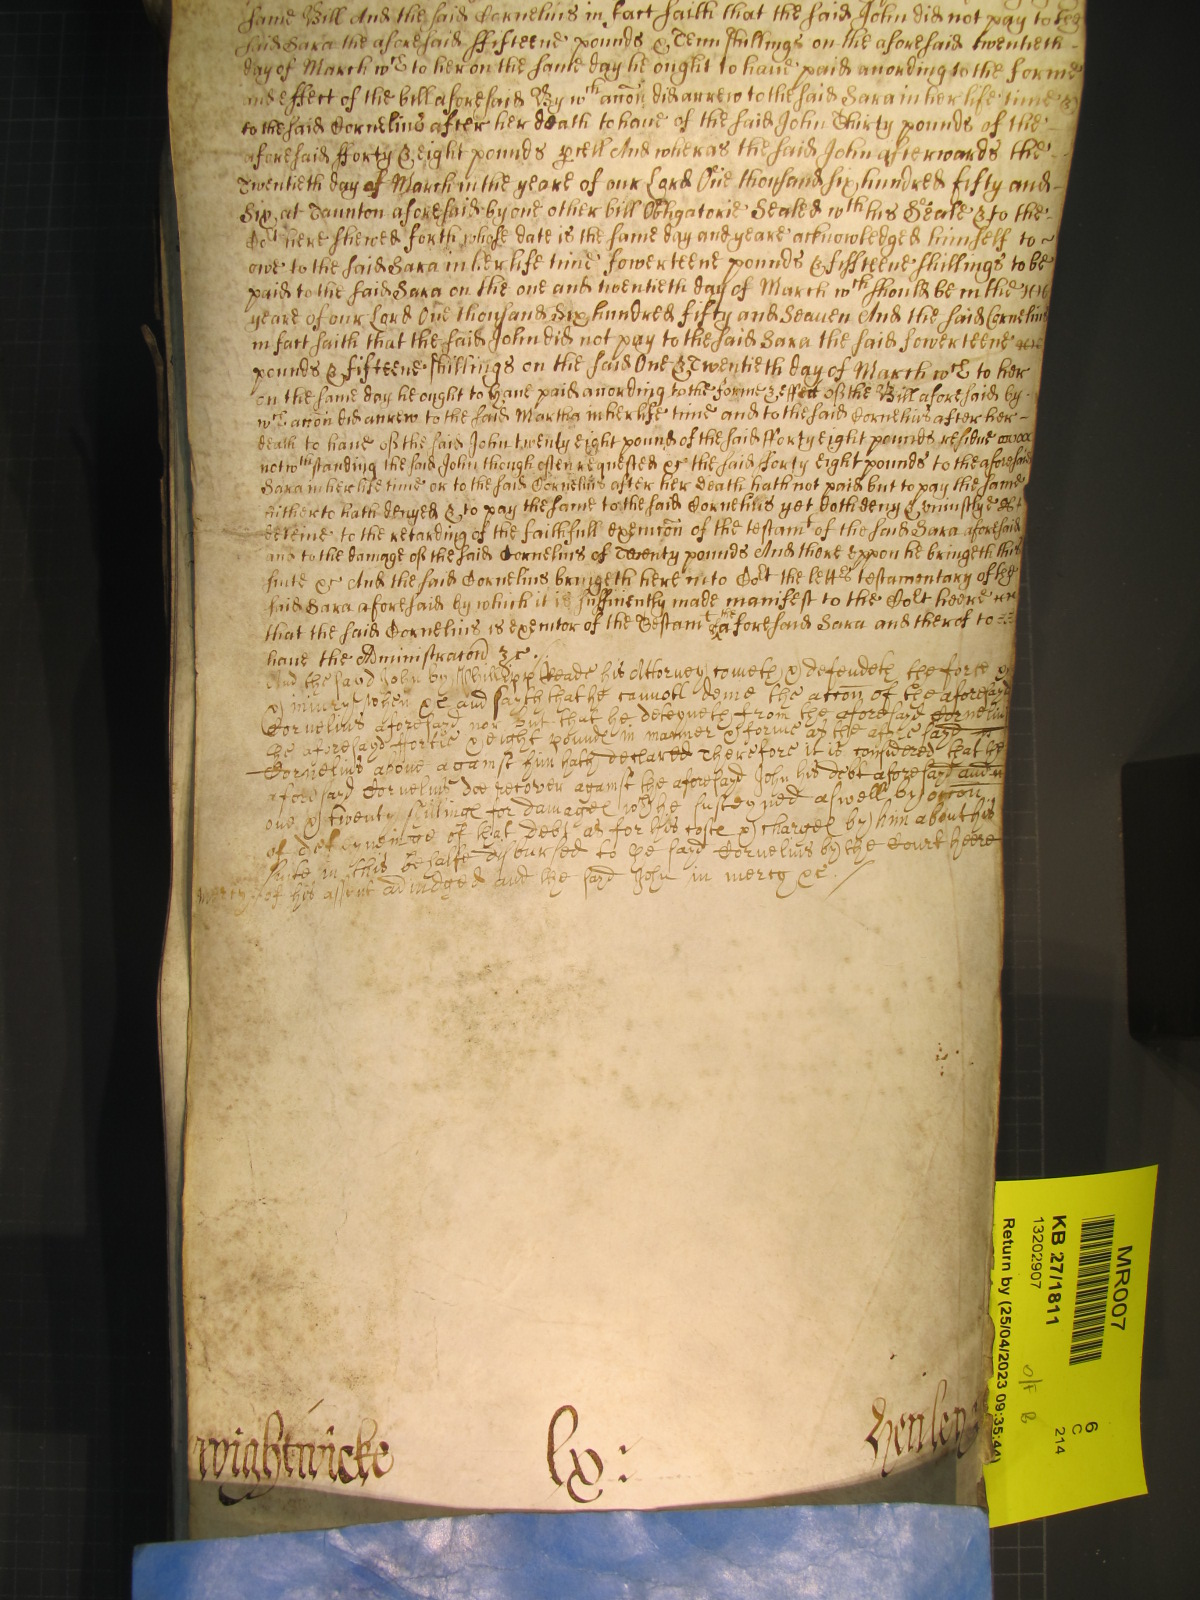 same Bill And the said Cornelius in fact saith that the said John did not pay to the
said Sara the aforesaid ffifteene pounds & Tenn shillings on the aforesaid twentieth
day of March wch to her on the same day he ought to haue paid according to the forme
and effect of the bill aforesaid By wch accon did accrew to the said Sara in her life time &
to the said Cornelius after her death to haue of the said John Thirty pounds of the
aforesaid fforty & eight pounds pcell And wheras the said John afterwards the
Twentieth day of March in the yeare of our Lord One thousand six hundred fifty and
Six at Taunton aforesaid by one other bill Obligatorie Sealed wth his Seale & to the
Cort here shewed forth whose date is the same day and yeare acknowledged himself to
owe to the said Sara in her life time fowerteene pounds & fifteene shillings to be
paid to the said Sara on the one and twentieth day of March wch should be in the
yeare of our Lord One thousand Six hundred fifty and Seauen And the said Cornelius
in fact saith that the said John did not pay to the said Sara the said fowerteene
pounds & fifteene shillings on the said One & Twentieth day of March wch to her
on the same day he ought to haue paid according to the forme & effect of the Bill aforesaid by
wch accon did accrew to the said Martha in her life time and to the said Cornelius after her
death to haue of the said John twenty eight pounds of the said fforty eight pounds residue
notwthstanding the said John though often requested &c the said fforty eight pounds to the aforesaid
Sara in her life time or to the said Cornelius after her death hath not paid but to pay the same
hitherto hath denyed & to pay the same to the said Cornelius yet doth deny & uniustlye
deteine to the retarding of the faithfull execucon of the testamt of the said Sara aforesaid
and to the damage of the said Cornelius of Twenty pounds And there uppon he bringeth this
suite &c And the said Cornelius bringeth here into Cort the lettes testamentary of the
said Sara aforesaid by which it is sufficiently made manifest to the Cort heere
that the said Cornelius is executor of the Testamt of the aforesaid Sara and therof to
haue the Administracon &c.
And the sayd John by Phillipp Reade his Attorney cometh & defendeth the force &
iniury when &c and saith that he cannott denie the accon of the aforesayd
Cornelius aforesayd nor but that he deteyneth from the aforesayd Cornelius
the aforesayd ffortie & eight pounds in manner & forme as the aforesayd
Cornelius aboue against him hath declared Therefore it is considered that the
aforesayd Cornelius doe recover against the aforesayd John his debt aforesayd and
one & twenty shillings for damages wch he susteyned aswell by occon
of deteyninge of that debt as for his costs & charges by him about his
suite in this behalfe disbursed to the sayd Cornelius by the Court heere
mercy of his assent adiudged and the sayd John in mercy &c.
Wightwicke lx: Henley
MR007
KB 27/1811
13202907
Return by (25/04/2023 09:35:44)
6
C
214
O/F